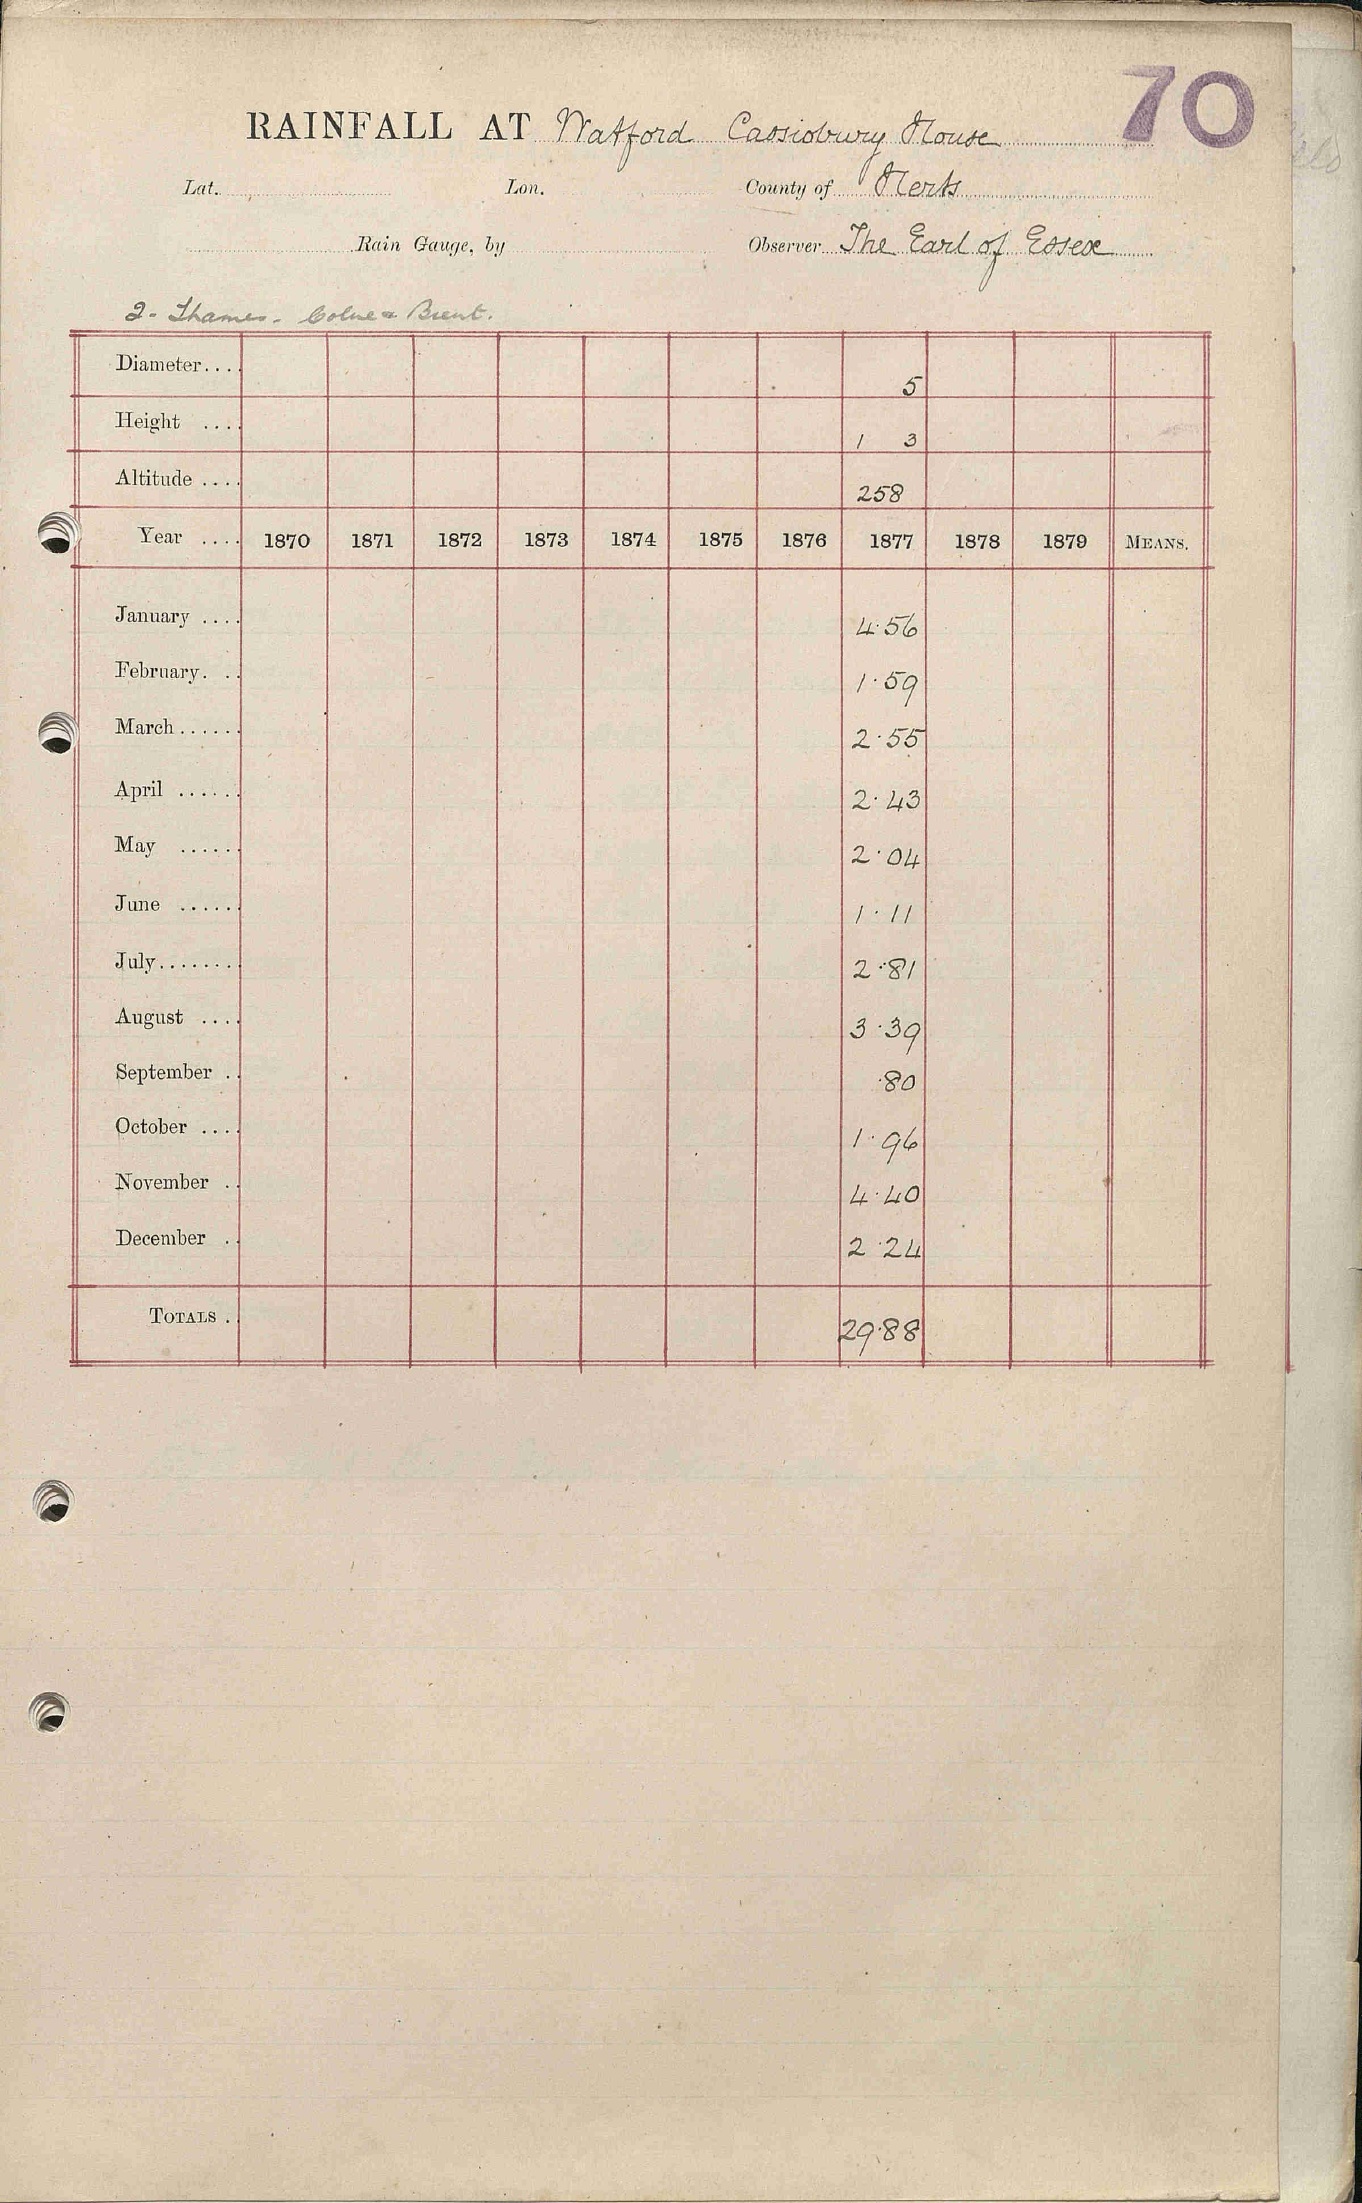 70
RAINFALL AT Watford Cassiobury House
Lat. Lon. County of Herts
Rain Gauge, by Observer The Earl of Essex
2 - Thames - Colne & Brent.
Diameter.... 5
Height .... 1 3
Altitude .... 258
Year .... 1870 1871 1872 1873 1874 1875 1876 1877 1878 1879 MEANS.
January .... 4.56
February. .. 1.59
March...... 2.55
April ...... 2.43
May ...... 2.04
June ...... 1.11
July........ 2.81
August .... 3.39
September .. .80
October .... 1.96
November .. 4.40
December .. 2.24
TOTALS .. 29.88